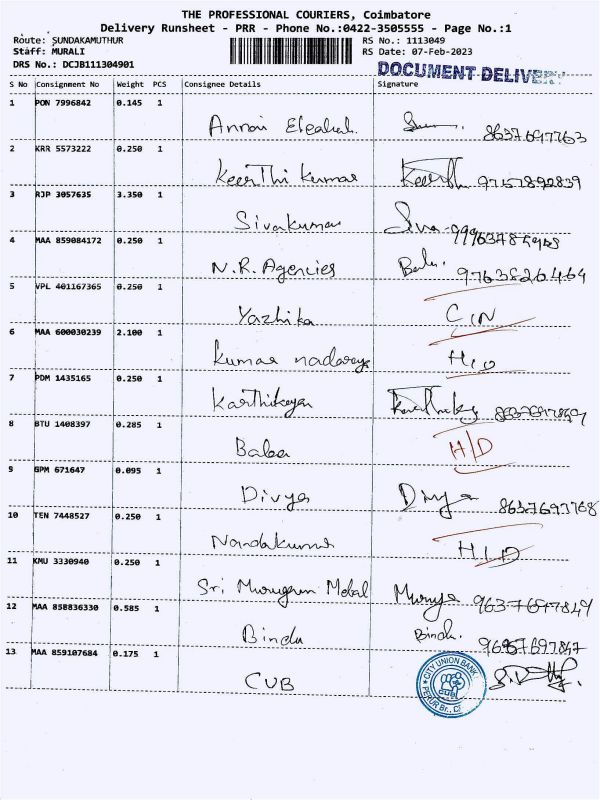 THE PROFESSIONAL COURIERS, Coimbatore
Delivery Runsheet - PRR - Phone No.:0422-3505555 - Page No.:1
Route: SUNDAKAMUTHUR RS No.: 1113049
Staff: MURALI RS Date: 07-Feb-2023
DRS No.: DCJB111304901 DOCUMENT DELIVERY
S No Consignment No Weight PCS Consignee Details Signature
1 PON 7996842 0.145 1
Annai 8637697763
2 KRR 5573222 0.250 1
Keerthi kumar Keerth 9757892839
3 RJP 3057635 3.350 1
Sivakumar Siva
4 MAA 859084172 0.250 1
N.R. Agencies Balu. 9763826464
5 VPL 401167365 0.250 1
Yazhika C/N
6 MAA 600030239 2.100 1
kumar H/D
7 PDM 1435165 0.250 1
Karthikeyan
8 BTU 1408397 0.285 1
H/D
9 GPM 671647 0.095 1
Divya Divya 8637697768
10 TEN 7448527 0.250 1
Nandakumar H/D
11 KMU 3330940 0.250 1
Sri Murugan Metal 9637697849
12 MAA 858836330 0.585 1
Bindu Bindu.
13 MAA 859107684 0.175 1
CUB
CITY UNION BANK